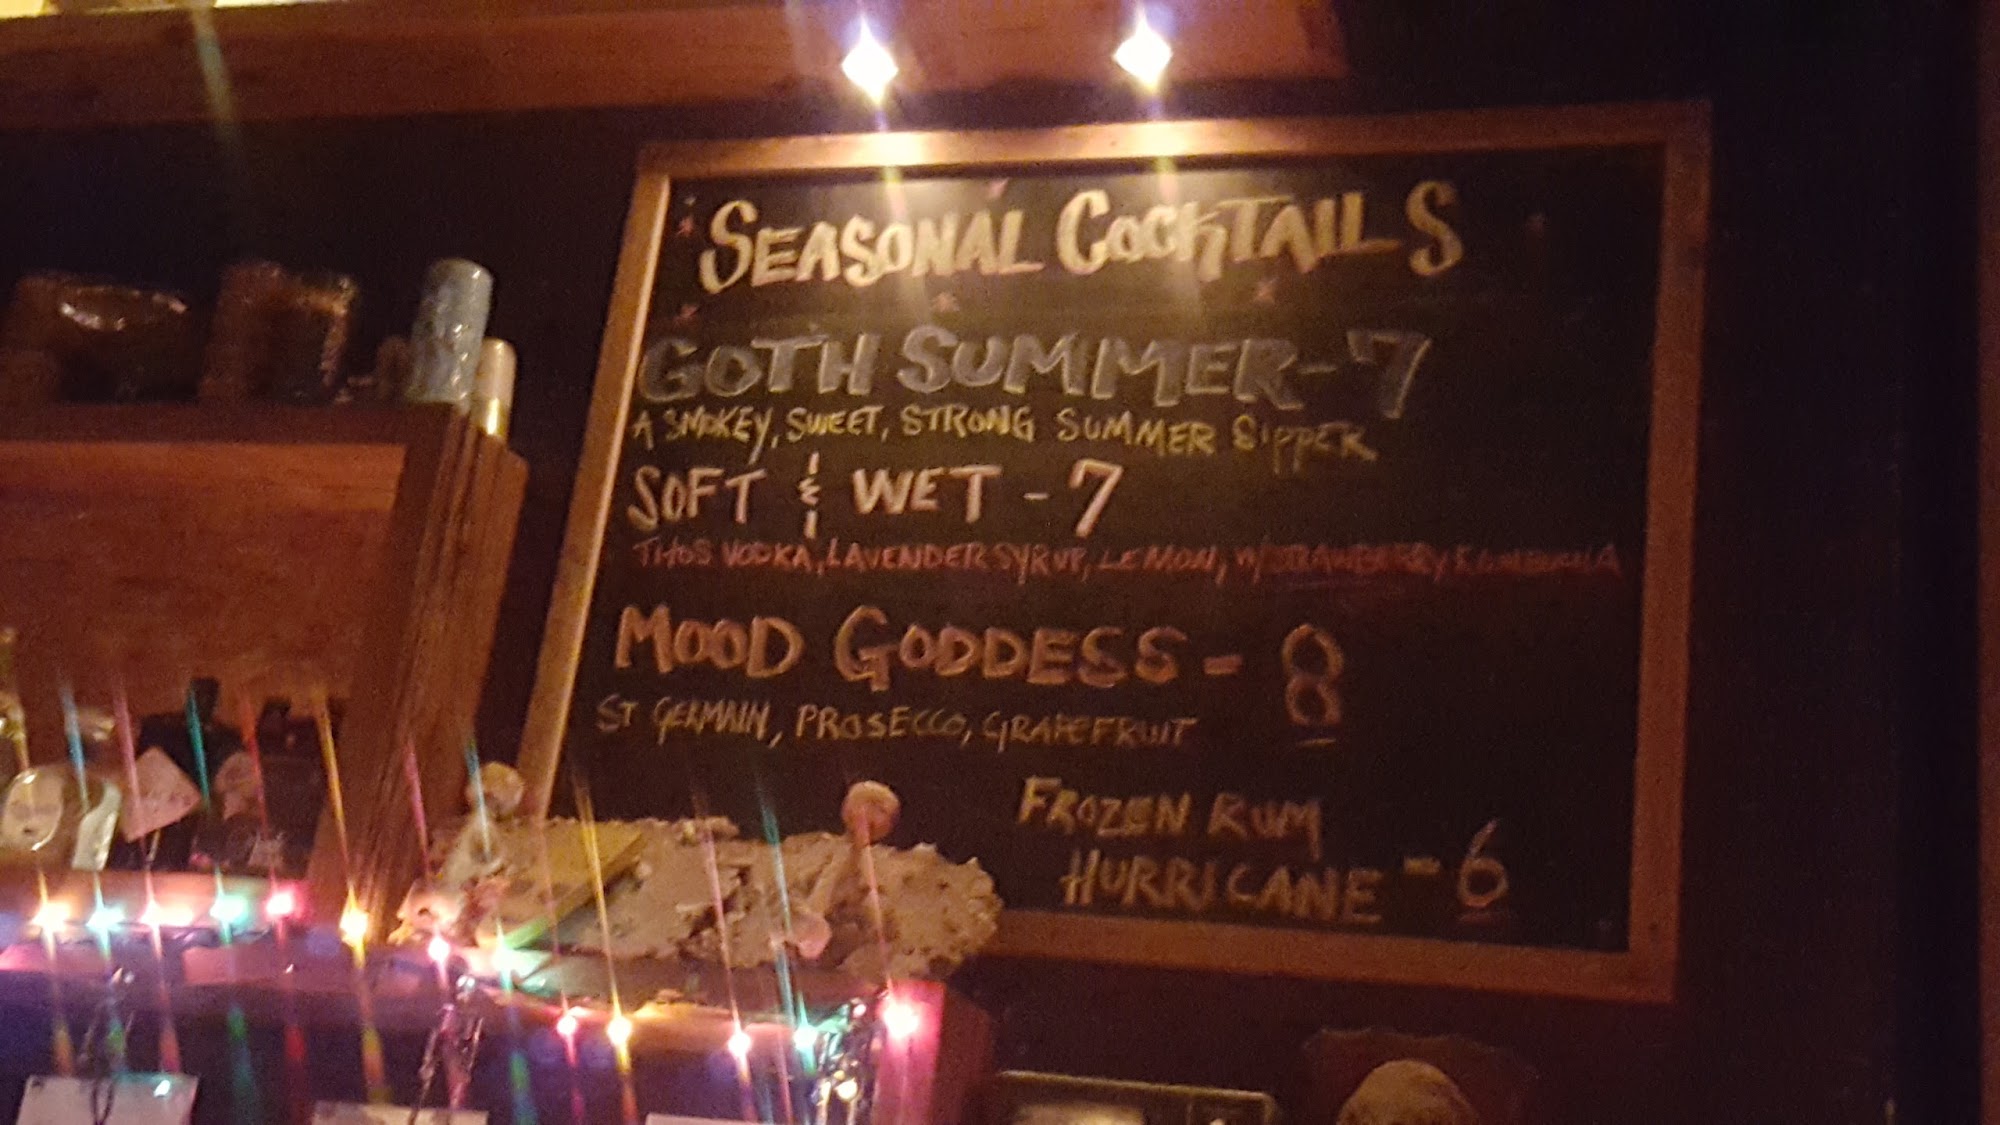 SEASONAL COCKTAILS
GOTH SUMMER - 7
A SMOKEY, SWEET, STRONG SUMMER SIPPER
SOFT & WET - 7
TITOS VODKA, LAVENDER SYRUP, LEMON, W/ STRAWBERRY KOMBUCHA
MOOD GODDESS - 8
ST GERMAIN, PROSECCO, GRAPEFRUIT
FROZEN RUM
HURRICANE - 6